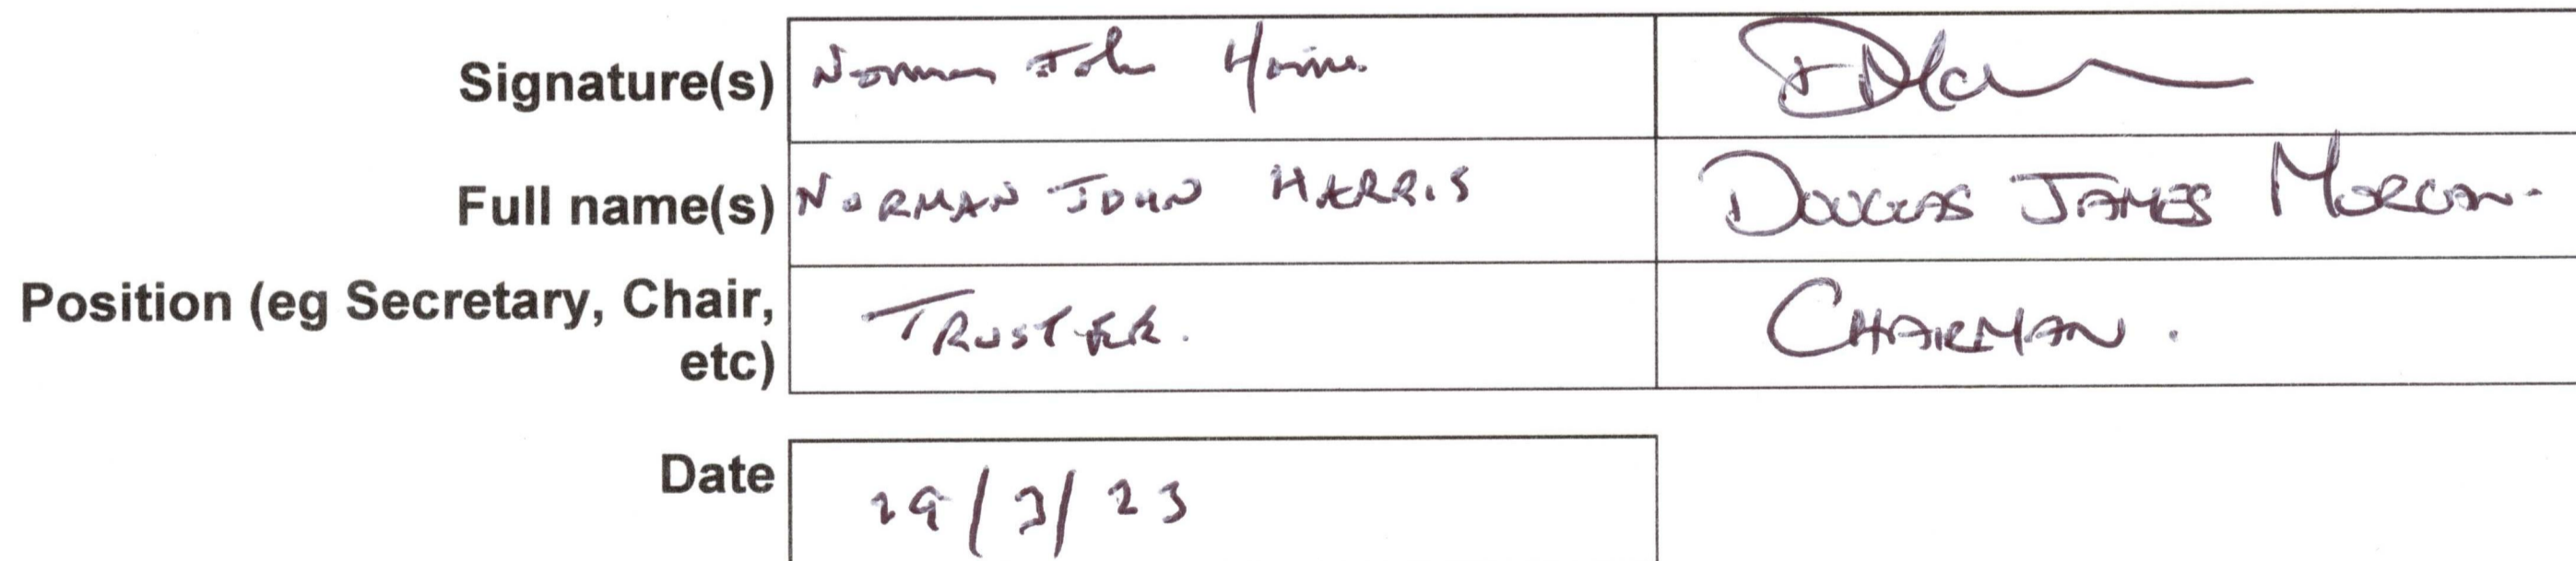 Signature(s) Norman John Harris
Full name(s) NORMAN JOHN HARRIS DOUGLAS JAMES MORGAN.
Position (eg Secretary, Chair, etc) TRUSTEE. CHAIRMAN.
Date 29/3/23